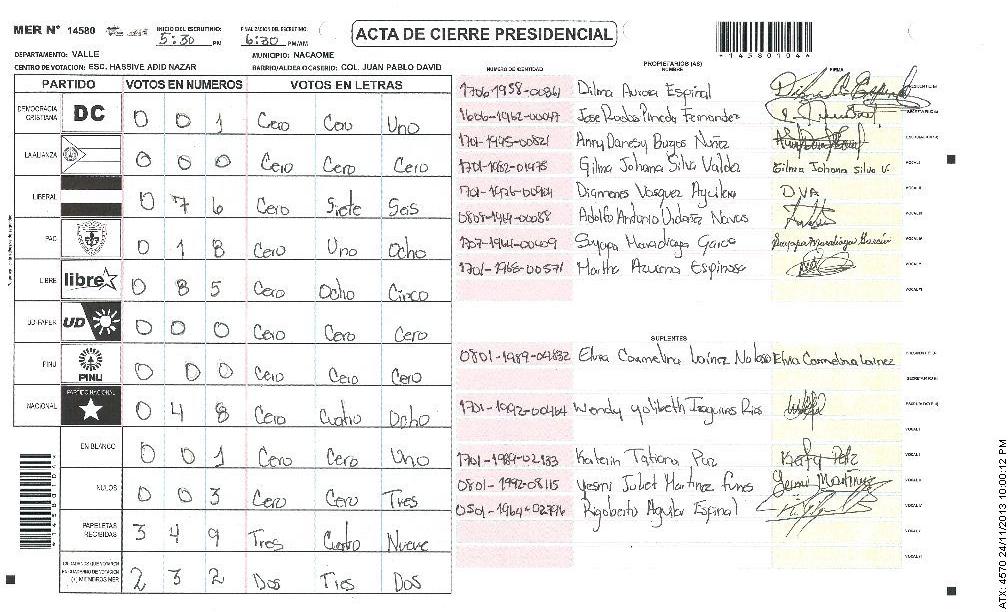 MER Nº 14580
INICIO DEL ESCRUTINIO: 5:30 PM
FINALIZACION DEL ESCRUTINIO: 6:30 PM/AM
ACTA DE CIERRE PRESIDENCIAL
*14580104*
DEPARTAMENTO: VALLE
MUNICIPIO: NACAOME
CENTRO DE VOTACION: ESC. HASSIVE ADID NAZAR
BARRIO/ALDEA O CASERIO: COL. JUAN PABLO DAVID
PARTIDO VOTOS EN NUMEROS VOTOS EN LETRAS
DEMOCRACIA CRISTIANA DC 0 0 1 Cero Cero Uno
LA ALIANZA 0 0 0 Cero Cero Cero
LIBERAL 0 7 6 Cero Siete Seis
PAC 0 1 8 Cero Uno Ocho
LIBRE libre 0 8 5 Cero Ocho Cinco
UD-FAPER UD 0 0 0 Cero Cero Cero
PINU PINU 0 0 0 Cero Cero Cero
NACIONAL PARTIDO NACIONAL 0 4 8 Cero Cuatro Ocho
EN BLANCO 0 0 1 Cero Cero Uno
NULOS 0 0 3 Cero Cero Tres
PAPELETAS RECIBIDAS 3 4 9 Tres Cuatro Nueve
CIUDADANOS QUE VOTARON EN CUADERNO DE VOTACION (+) MIEMBROS MER 2 3 2 Dos Tres Dos
NUMERO DE IDENTIDAD PROPIETARIOS (AS) NOMBRE FIRMA
1706-1958-00361 Dilma Aurora Espinal
1606-1962-00047 Jose Fernandez
1701-1975-00821 Anny Danesy Burgos Nuñez
1701-1982-01475 Gilma Johana Silva Valdez Gilma Johana Silva V. VOCAL I
Diamones Vasquez Aguilera DVA VOCAL II
Adolfo Antonio
Suyapa Maradiaga Garcia Suyapa Maradiaga Garcia
1701-1965-00571 Martha Azucena Espinosa
SUPLENTES
0801-1989-04832 Elvia Carmelina Lainez Elvia Carmelina Lainez
1701-1992-00464 Wendy Yolibeth Izaguirre Rios
1701-1989-02133 Katerin Tatiana Paz Katy Paz
0801-1992-08115 Yesmi Julbet Martinez Funes Yesmi Martinez
0501-1964-02796 Rigoberto Aguilar Espinal
ATX: 4570 24/11/2013 10:00:12 PM